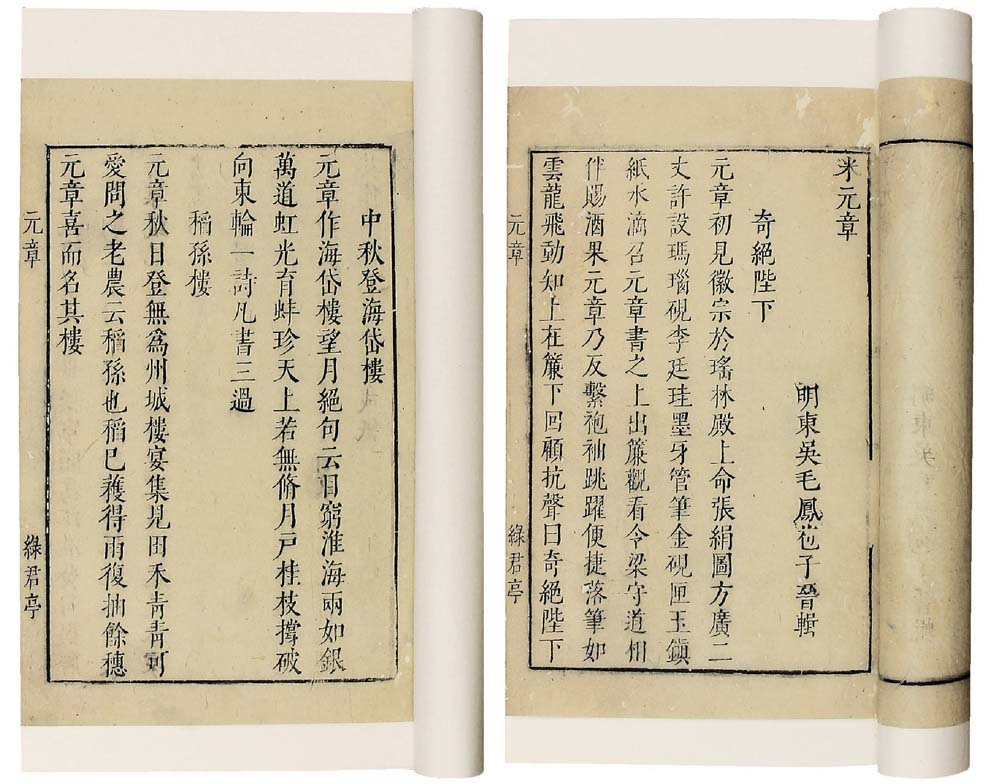 米元章
明東吳毛鳳苞子晉輯
奇絕陛下
元章初見徽宗於瑤林殿上命張絹圖方廣二
丈許設瑪瑙硯李廷珪墨牙管筆金硯匣玉鎮
紙水滴召元章書之上出簾觀看令梁守道相
伴賜酒果元章乃反繫袍袖跳躍便捷落筆如
雲龍飛動知上在簾下回顧抗聲曰奇絕陛下
元章 綠君亭
中秋登海岱樓
元章作海岱樓望月絕句云目窮淮海兩如銀
萬道虹光育蚌珍天上若無脩月戶桂枝撐破
向東輪一詩凡書三過
稻孫樓
元章秋日登無爲州城樓宴集見田禾青青可
愛問之老農云稻孫也稻已穫得雨復抽餘穗
元章喜而名其樓
元章 綠君亭